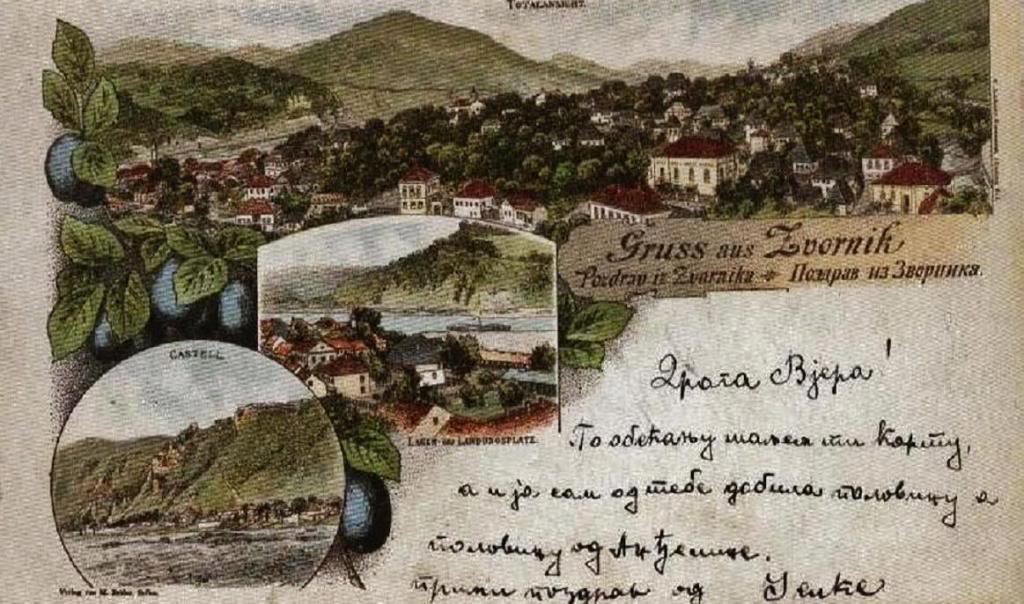 TOTALANSICHT.
Gruss aus Zvornik
Pozdrav iz Zvornika Поздрав из Зворника.
CASTELL
LAGER- UND LANDUNGSPLATZ.
Драга Вјера!
По обећању шаљем ти карту,
а и ја сам од тебе добила половину а
половину од Анђелике.
прими поздрав од Јелке
Verlag von M.